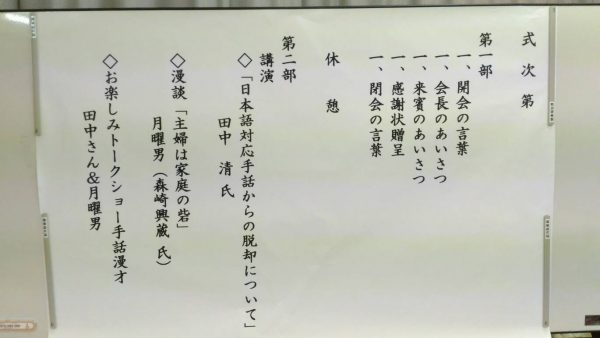 式次第
第一部
一、開会の言葉
一、会長のあいさつ
一、来賓のあいさつ
一、感謝状贈呈
一、閉会の言葉
休憩
第二部
講演
◇「日本語対応手話からの脱却について」
田中 清 氏
◇漫談「主婦は家庭の砦」
月曜男（森崎興蔵 氏）
◇お楽しみトークショー手話漫才
田中さん＆月曜男